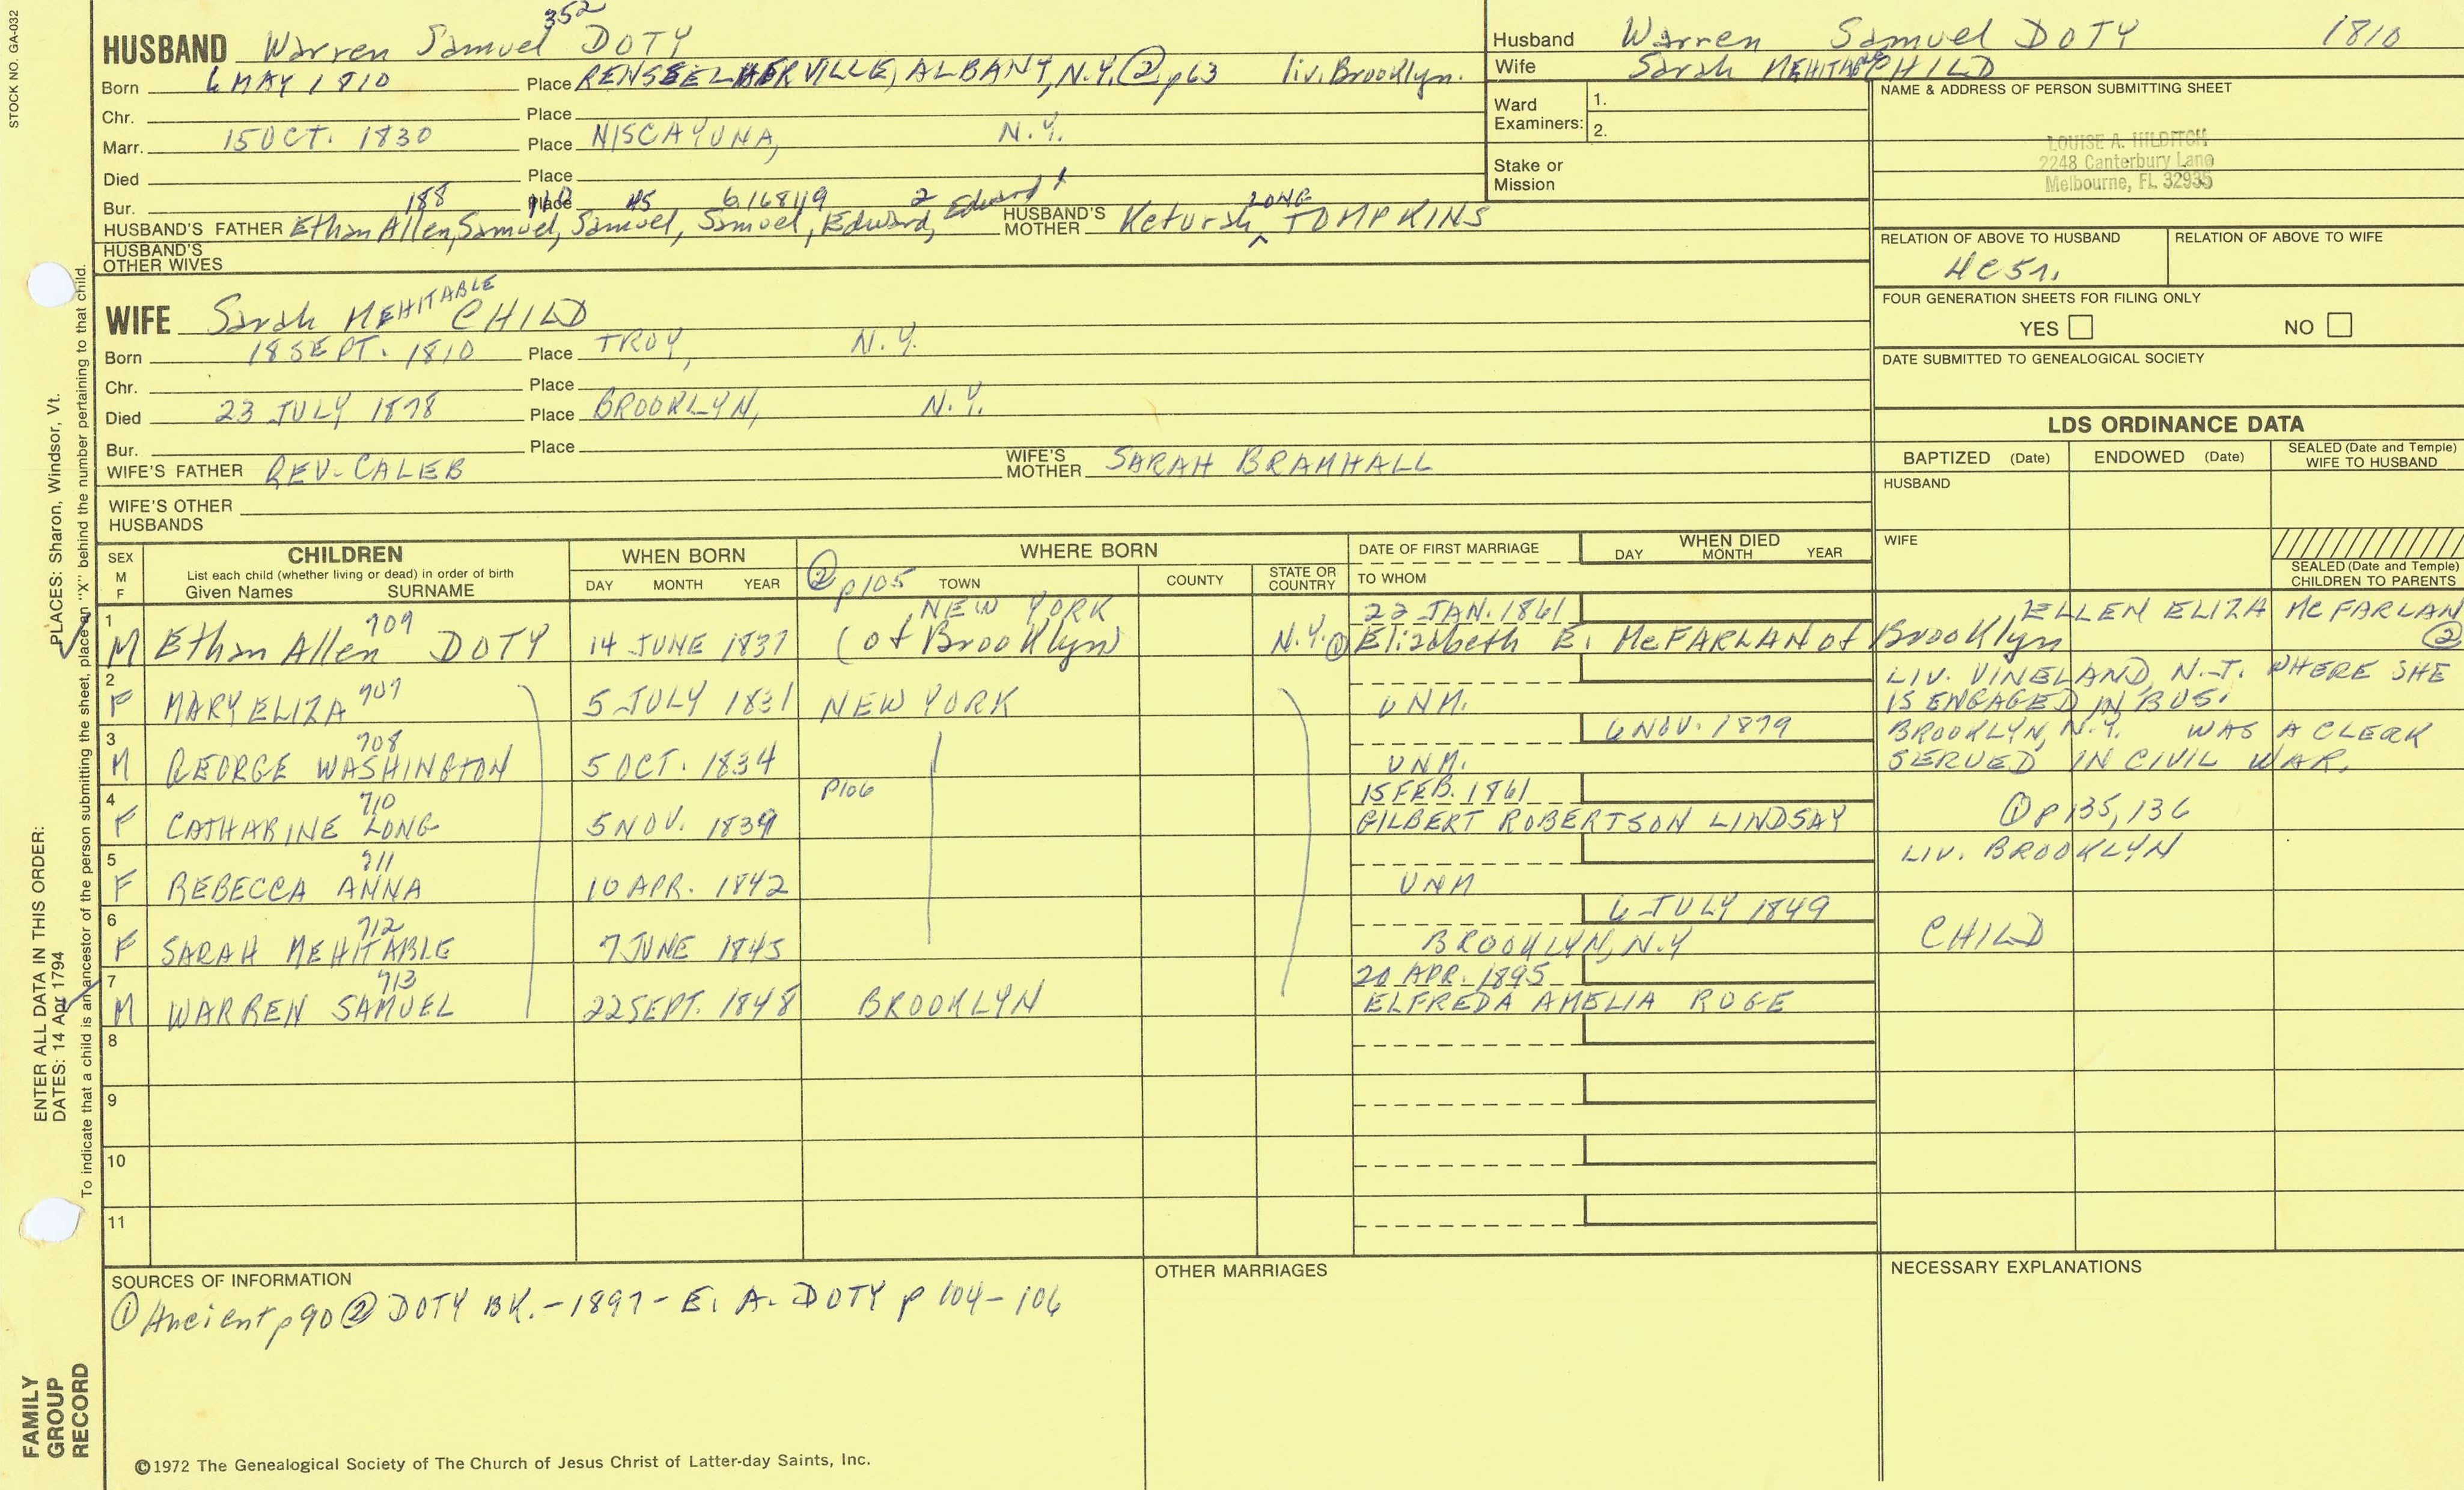 STOCK NO. GA-032
352
HUSBAND Warren Samuel DOTY
Born 6 MAY 1810 Place RENSSELAERVILLE, ALBANY, N.Y. ② p63 liv. Brooklyn.
Chr. Place
Marr. 15 OCT. 1830 Place NISCAYUNA, N.Y.
Died Place
Bur. Place
188 110 45 6,168,49 2 Edward 1
HUSBAND'S FATHER Ethan Allen, Samuel, Samuel, Samuel, Edward, HUSBAND'S MOTHER Keturah LONG TOMPKINS
HUSBAND'S OTHER WIVES
Husband Warren Samuel DOTY 1810
Wife Sarah MEHITABLE CHILD
Ward Examiners: 1.
2.
Stake or Mission
NAME & ADDRESS OF PERSON SUBMITTING SHEET
LOUISE A. HILDITCH
2248 Canterbury Lane
Melbourne, FL 32935
RELATION OF ABOVE TO HUSBAND RELATION OF ABOVE TO WIFE
4C5r.
FOUR GENERATION SHEETS FOR FILING ONLY
YES NO
DATE SUBMITTED TO GENEALOGICAL SOCIETY
WIFE Sarah MEHITABLE CHILD
Born 18 SEPT. 1810 Place TROY, N.Y.
Chr. Place
Died 23 JULY 1878 Place BROOKLYN, N.Y.
Bur. Place
WIFE'S FATHER REV. CALEB WIFE'S MOTHER SARAH BRAMHALL
WIFE'S OTHER HUSBANDS
LDS ORDINANCE DATA
BAPTIZED (Date) ENDOWED (Date) SEALED (Date and Temple) WIFE TO HUSBAND
HUSBAND
WIFE
SEALED (Date and Temple) CHILDREN TO PARENTS
SEX M F
CHILDREN
List each child (whether living or dead) in order of birth
Given Names SURNAME
WHEN BORN
DAY MONTH YEAR
WHERE BORN
② p105 TOWN COUNTY STATE OR COUNTRY
DATE OF FIRST MARRIAGE
TO WHOM
WHEN DIED
DAY MONTH YEAR
1 709 NEW YORK 22 JAN. 1861 ELLEN ELIZA McFARLAN ②
M Ethan Allen DOTY 14 JUNE 1837 (of Brooklyn) N.Y. ① Elizabeth E. McFARLAN of Brooklyn
2 707 LIV. VINELAND, N.J. WHERE SHE
F MARY ELIZA 5 JULY 1831 NEW YORK UNM. IS ENGAGED IN BUS.
3 708 6 NOV. 1879 BROOKLYN, N.Y. WAS A CLERK
M GEORGE WASHINGTON 5 OCT. 1834 UNM. SERVED IN CIVIL WAR.
4 710 P106 15 FEB. 1861
F CATHARINE LONG 5 NOV. 1839 GILBERT ROBERTSON LINDSAY ① p135, 136
5 711 LIV. BROOKLYN
F REBECCA ANNA 10 APR. 1842 UNM
6 712 6 JULY 1849
F SARAH MEHITABLE 7 JUNE 1845 BROOKLYN, N.Y CHILD
7 713 20 APR. 1895
M WARREN SAMUEL 22 SEPT. 1848 BROOKLYN ELFREDA AMELIA ROGE
8
9
10
11
SOURCES OF INFORMATION
① Ancient p90 ② DOTY BK. - 1897 - E. A. DOTY p 104-106
OTHER MARRIAGES
NECESSARY EXPLANATIONS
©1972 The Genealogical Society of The Church of Jesus Christ of Latter-day Saints, Inc.
ENTER ALL DATA IN THIS ORDER:
DATES: 14 Apr 1794
PLACES: Sharon, Windsor, Vt.
To indicate that a child is an ancestor of the person submitting the sheet, place an "X" behind the number pertaining to that child.
FAMILY
GROUP
RECORD